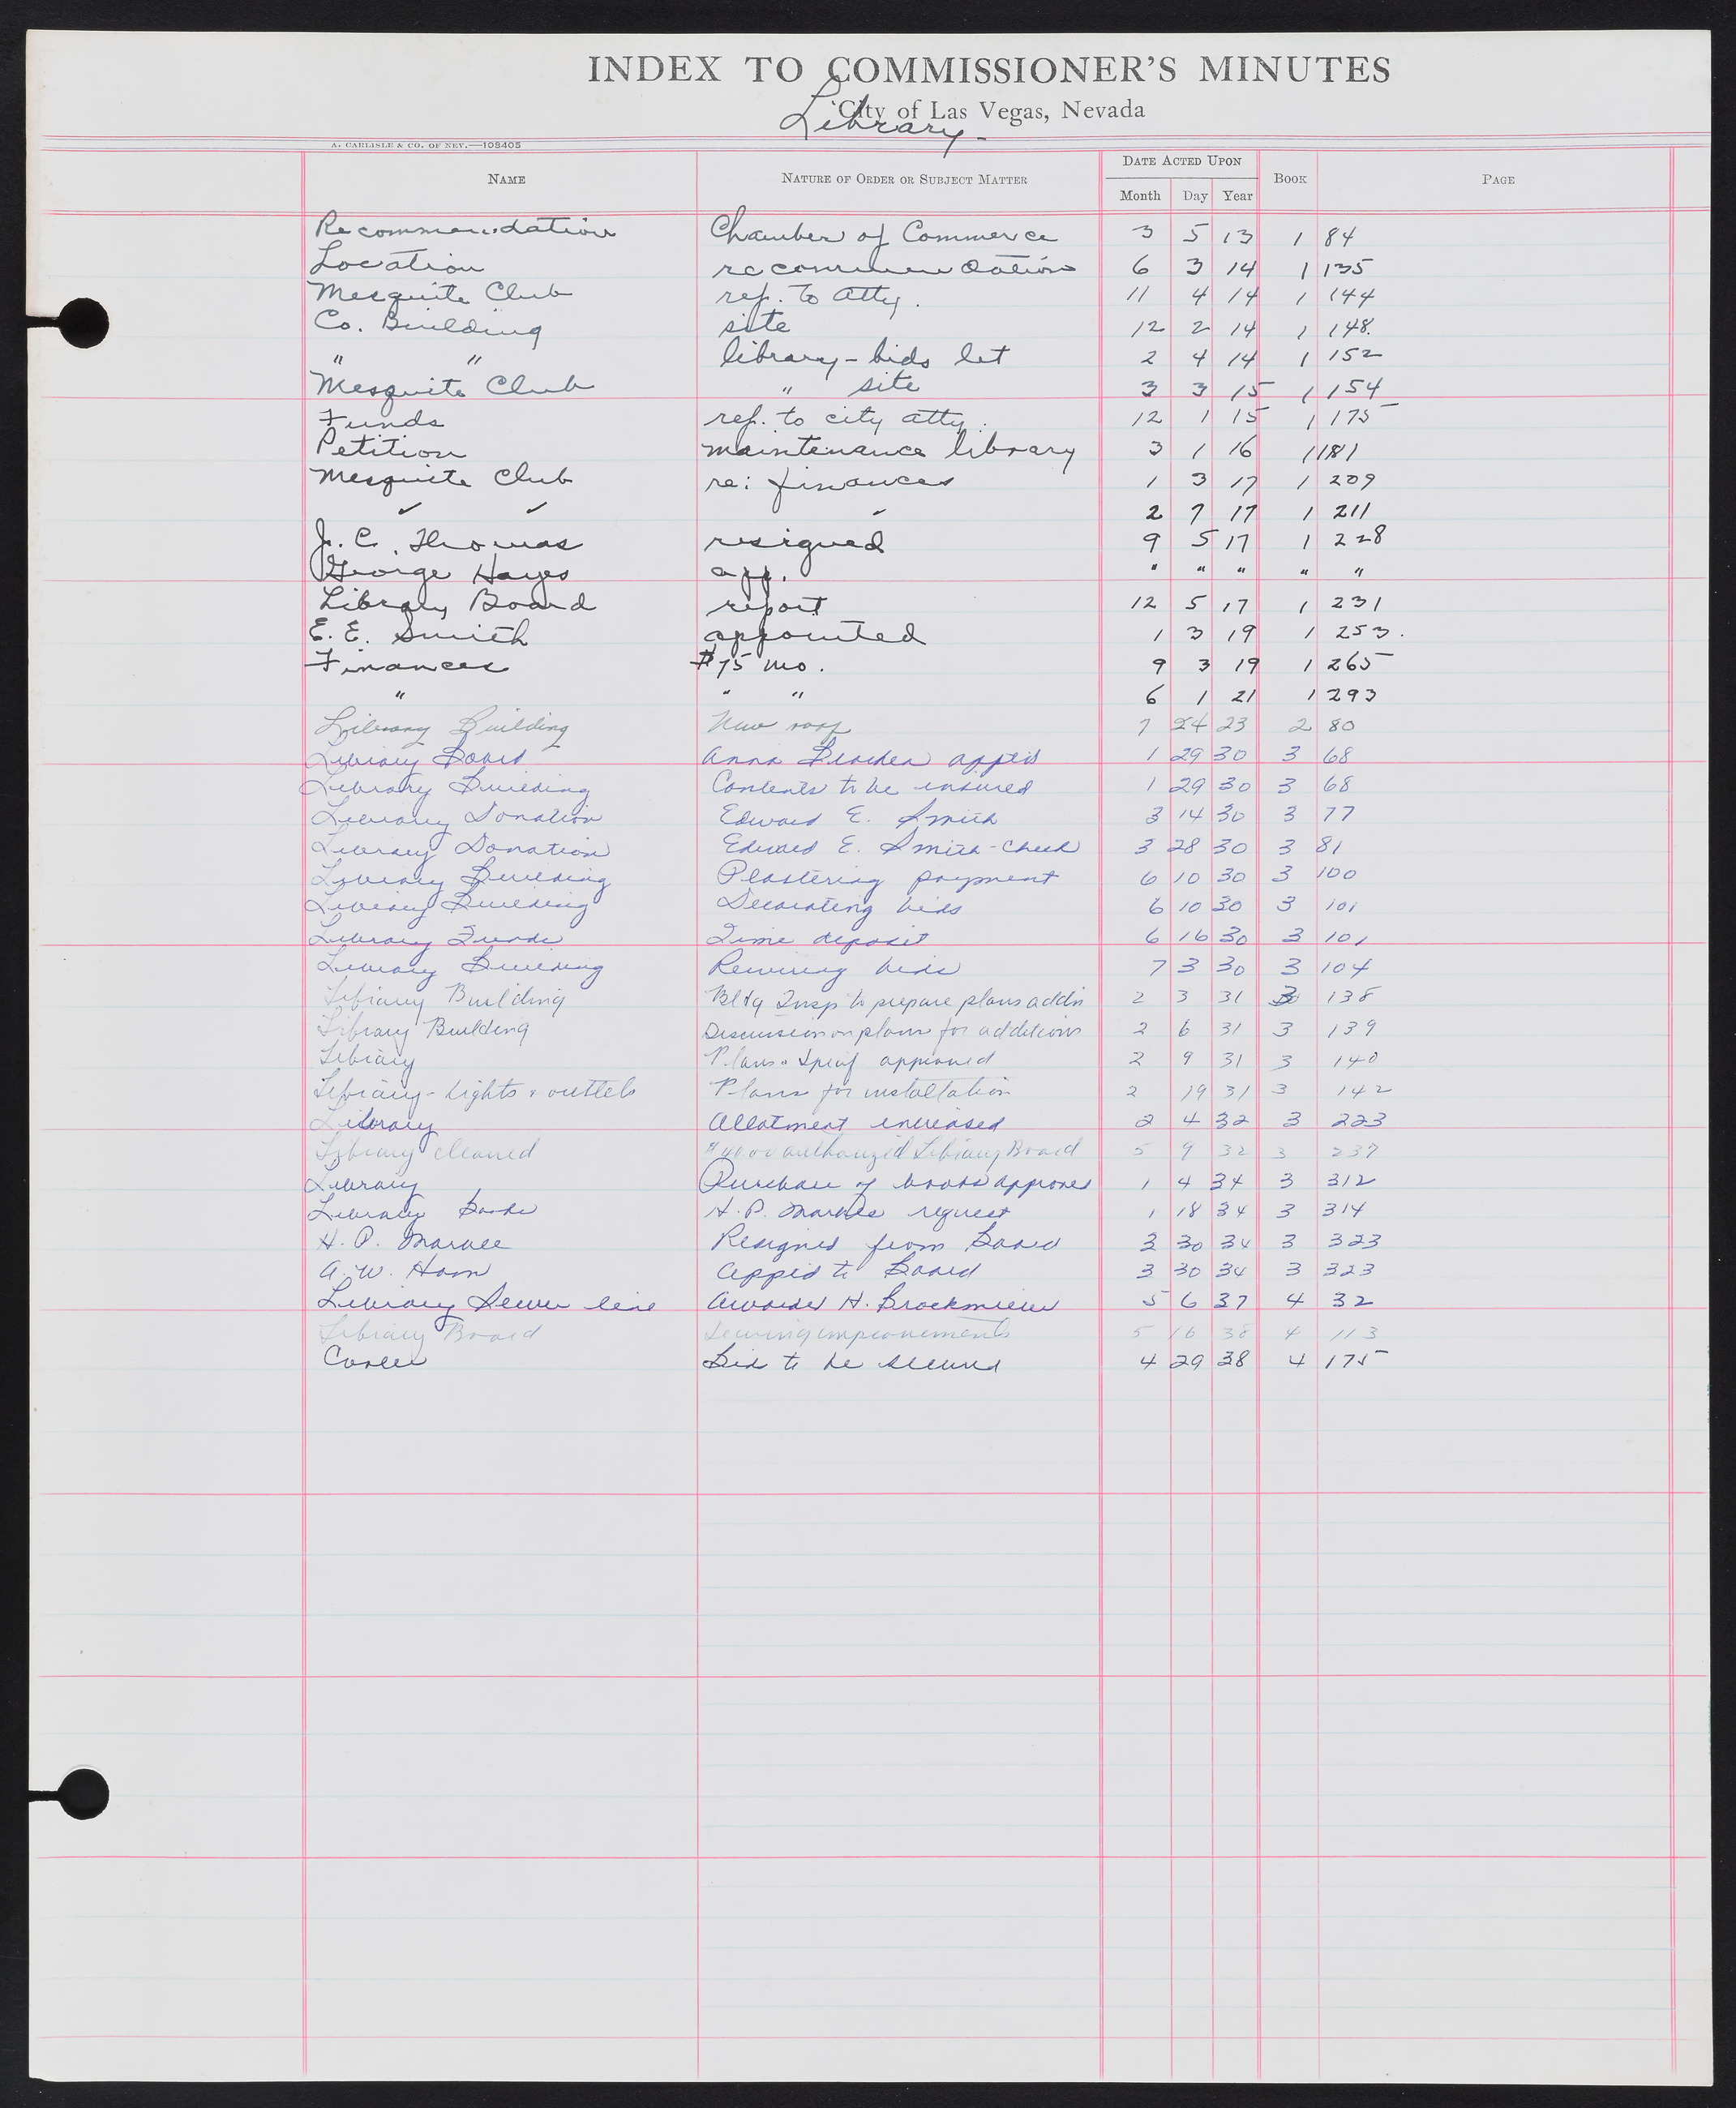 INDEX TO COMMISSIONER'S MINUTES
City of Las Vegas, Nevada
Library -
A. CARLISLE & CO. OF NEV.—108405
NAME NATURE OF ORDER OR SUBJECT MATTER DATE ACTED UPON Month Day Year BOOK PAGE
Recommendation Chamber of Commerce 3 5 13 1 84
Location recommendation 6 3 14 1 135
Mesquite Club ref. to atty. 11 4 14 1 144
Co. Building site 12 2 14 1 148.
" " library - bids let 2 4 14 1 152
Mesquite Club " site 3 3 15 1 154
Funds ref. to city atty. 12 1 15 1 175
Petition maintenance library 3 1 16 1 181
Mesquite Club re: finances 1 3 17 1 209
✓ ✓ ✓ 2 7 17 1 211
J. C. Thomas resigned 9 5 17 1 228
George Hayes app. " " " " "
Library Board report 12 5 17 1 231
E. E. Smith appointed 1 3 19 1 253.
Finances $75 mo. 9 3 19 1 265
" " " 6 1 21 1 293
Library Building New roof 7 24 23 2 80
Library Board Anna apptd 1 29 30 3 68
Library Building Contents to be insured 1 29 30 3 68
Library Donation Edward E. Smith 3 14 30 3 77
Library Donation Edward E. Smith - check 3 28 30 3 81
Library Building Plastering payment 6 10 30 3 100
Library Building Decorating bids 6 10 30 3 101
Library Funds Time deposit 6 16 30 3 101
Library Building Rewiring bids 7 3 30 3 104
Library Building Bldg Insp to prepare plans addn 2 3 31 3 138
Library Building Discussion on plans for additions 2 6 31 3 139
Library Plans & Specif approved 2 9 31 3 140
Library - Lights & outlets Plans for installation 2 19 31 3 142
Library Allotment increased 2 4 32 3 223
Library cleaned $40.00 authorized Library Board 5 9 32 3 237
Library Purchase of books approved 1 4 34 3 312
Library Books H. P. Marble request 1 18 34 3 314
H. P. Marble Resigned from Board 3 30 34 3 323
A. W. Ham Apptd to Board 3 30 34 3 323
Library Sewer line Awarded H. Brockmeier 5 6 37 4 32
Library Board improvements 5 16 38 4 113
Cooler Bid to be secured 4 29 38 4 175